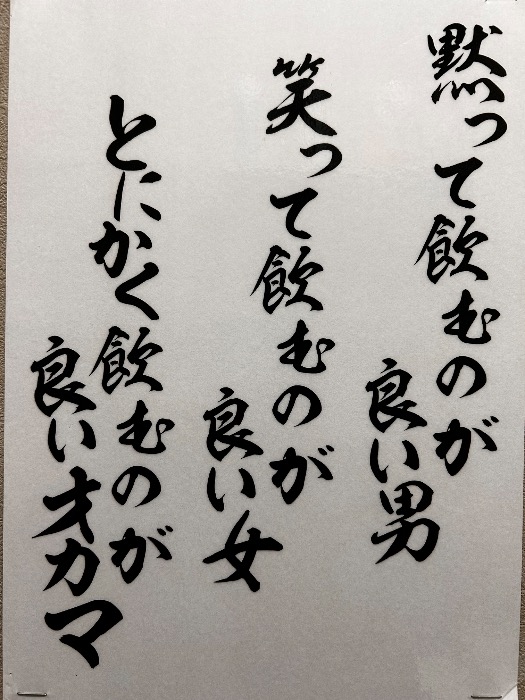 黙って飲むのが
良い男
笑って飲むのが
良い女
とにかく飲むのが
良いオカマ